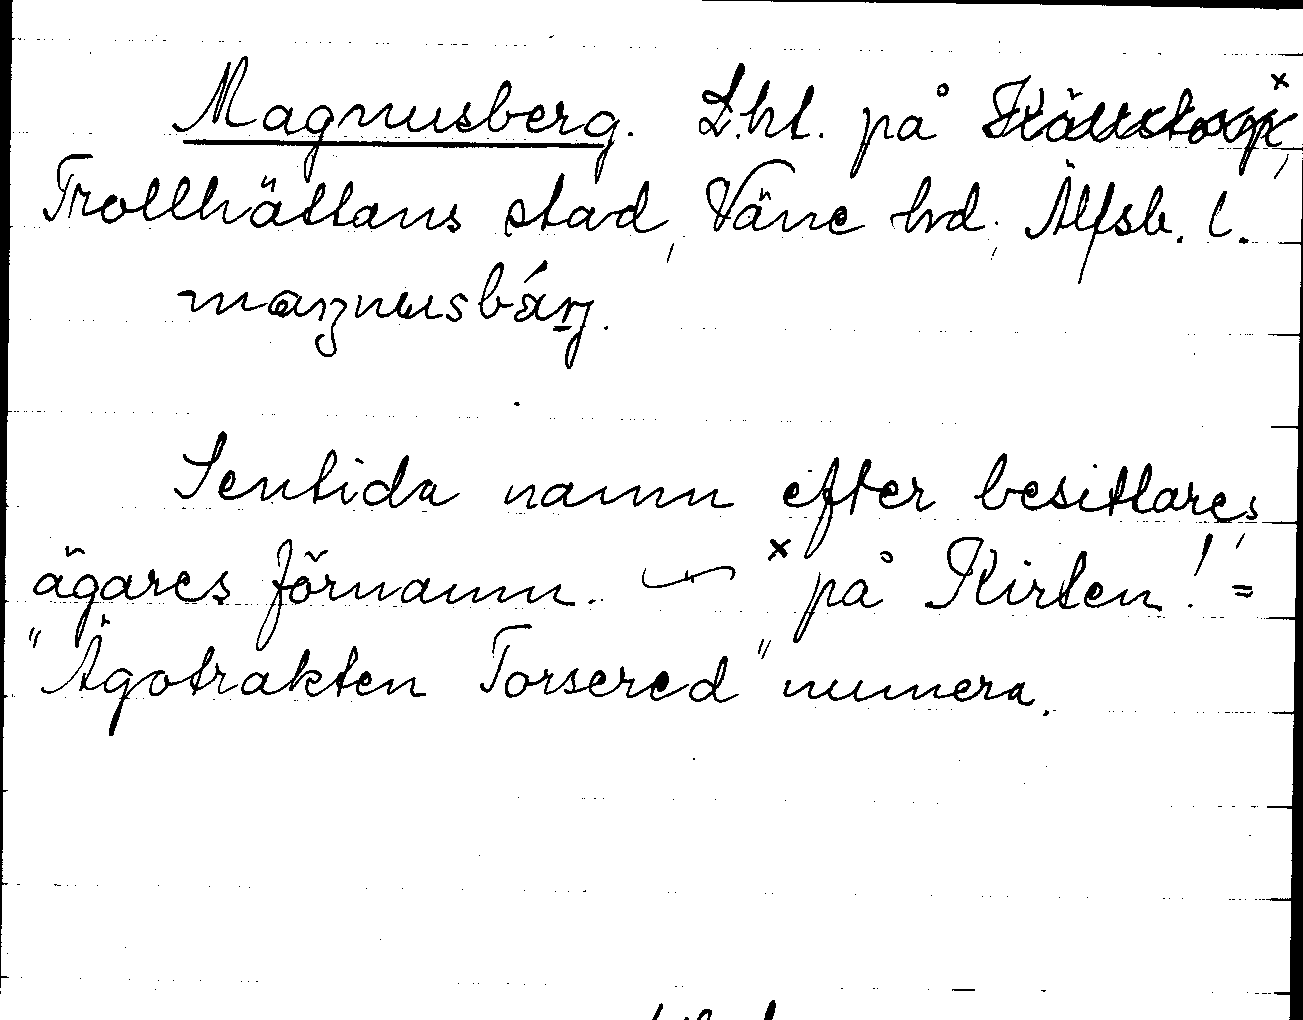 Magnusberg. Lht. på Källstorp x,
Trollhättans stad, Väne hd, Älfsb. l.
maŋnusbárj.
Sentida namn efter besittares,
ägares förnamn. — x på Kirten! =
"Ägotrakten Torsered" numera.